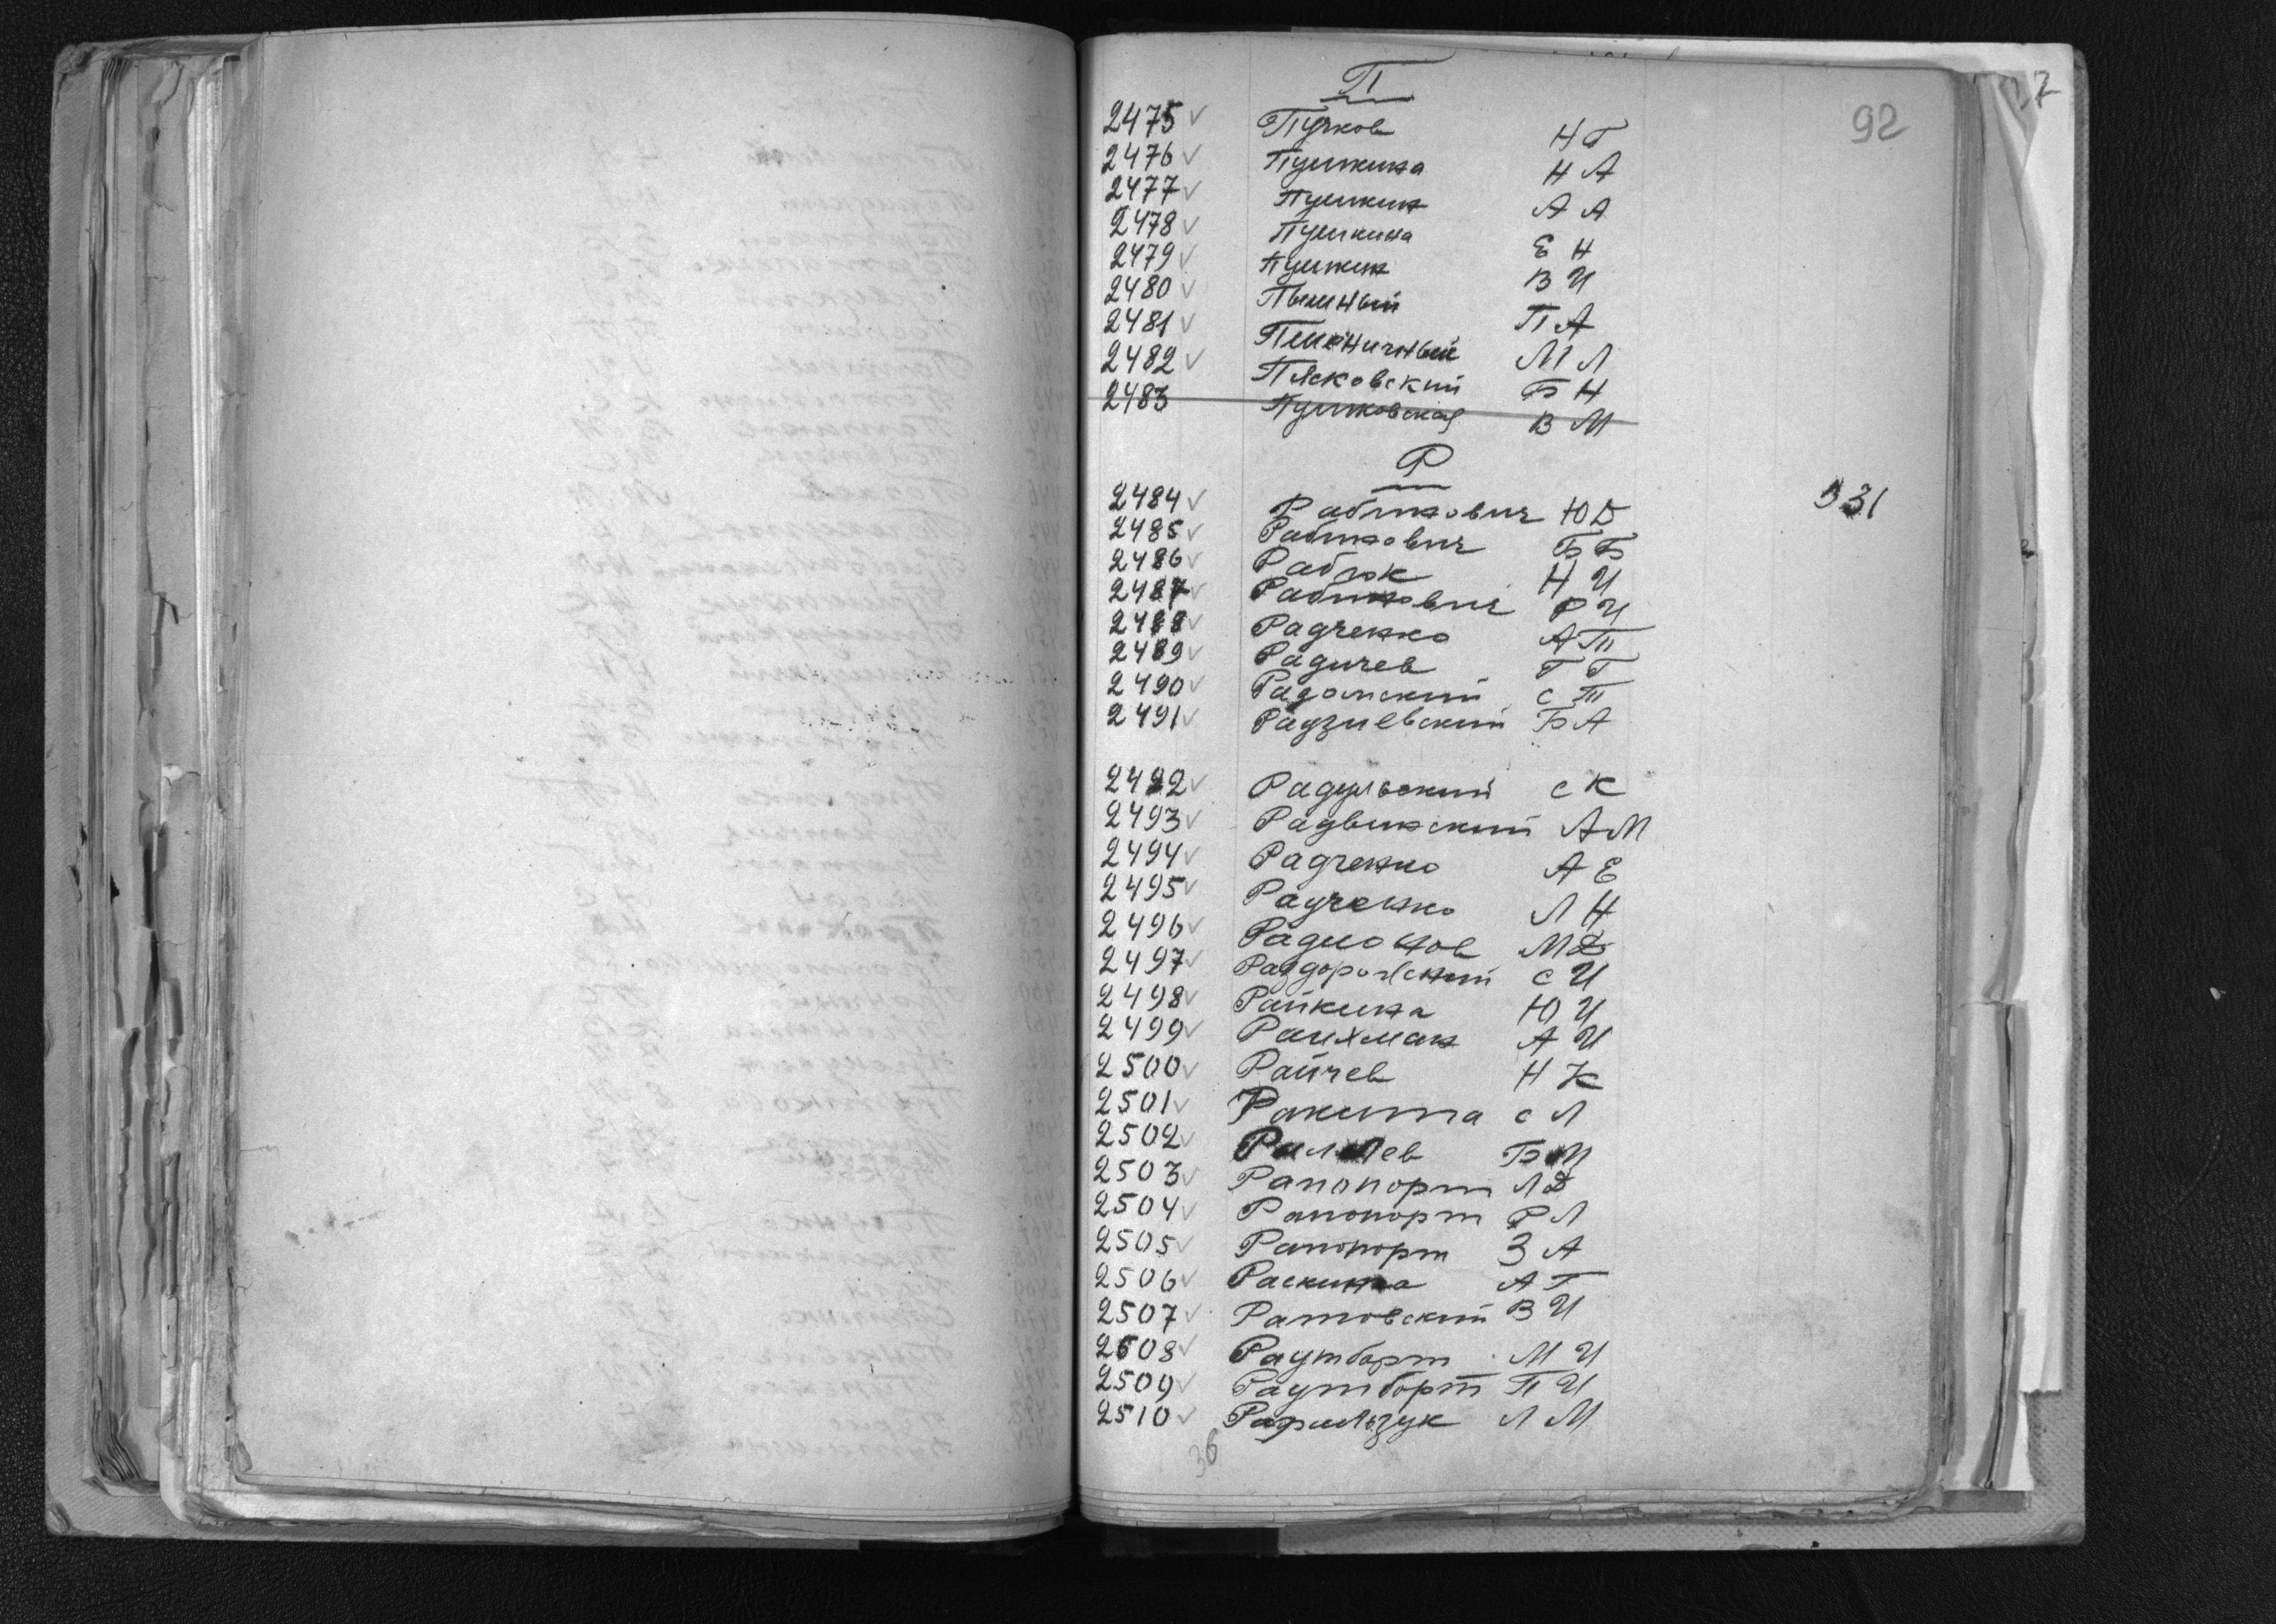 92
П
2475 ✓ Пучков Н Г
2476 ✓ Пушкина Н А
2477 ✓ Пушкин А А
2478 ✓ Пушкина Е Н
2479 ✓ Пушкин В И
2480 ✓ Пышный П А
2481 ✓ Пшеничный М Л
2482 ✓ Плясковский Б Н
2483 Пушковская В М
Р
2484 ✓ Рабинович Ю Д 331
2485 ✓ Рабинович Б Б
2486 ✓ Рабюк Н И
2487 ✓ Рабинович Р И
2488 ✓ Радченко А П
2489 ✓ Радичев Г Г
2490 ✓ Радомский С П
2491 ✓ Радзиевский Б А
2492 ✓ Радульский С К
2493 ✓ Радвинский А М
2494 ✓ Радченко А Е
2495 ✓ Радченко Л Н
2496 ✓ Радионов М Д
2497 ✓ Раздорожский С И
2498 ✓ Райкина Ю И
2499 ✓ Райхман А И
2500 ✓ Райчев Н К
2501 ✓ Ракита С Л
2502 ✓ Б М
2503 ✓ Рапопорт Л Д
2504 ✓ Рапопорт Р Л
2505 ✓ Рапопорт З А
2506 ✓ Раскина А Г
2507 ✓ Ратовский В И
2508 ✓ Раутборт М И
2509 ✓ Раутборт П И
2510 ✓ Л М
36